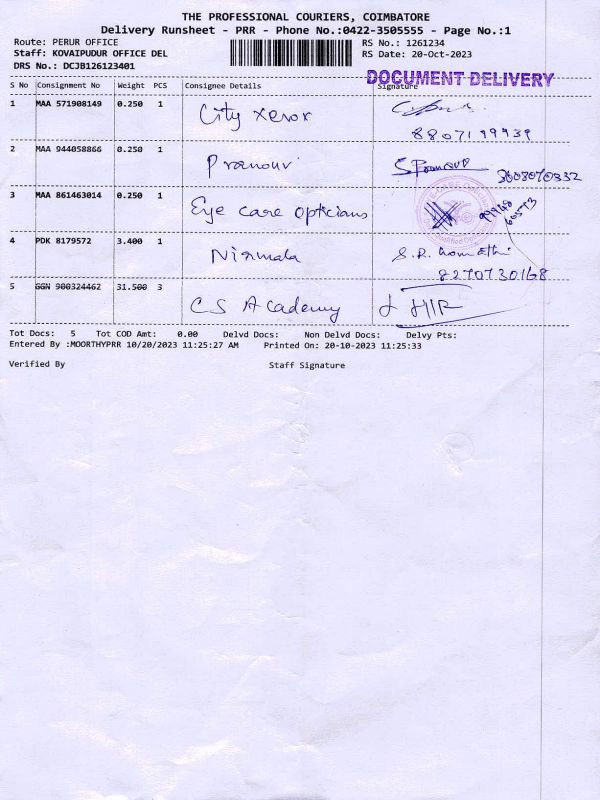 THE PROFESSIONAL COURIERS, COIMBATORE
Delivery Runsheet - PRR - Phone No.:0422-3505555 - Page No.:1
Route: PERUR OFFICE
RS No.: 1261234
Staff: KOVAIPUDUR OFFICE DEL
RS Date: 20-Oct-2023
DRS No.: DCJB126123401
DOCUMENT DELIVERY
S No Consignment No Weight PCS Consignee Details Signature
1 MAA 571908149 0.250 1 City Xerox
8807199939
2 MAA 944058866 0.250 1 Pranour
3 MAA 861463014 0.250 1 Eye care opticians
99948
60573
4 PDK 8179572 3.400 1 Nirmala
8270730168
5 GGN 900324462 31.500 3 CS Academy
Tot Docs: 5 Tot COD Amt: 0.00 Delvd Docs: Non Delvd Docs: Delvy Pts:
Entered By :MOORTHYPRR 10/20/2023 11:25:27 AM Printed On: 20-10-2023 11:25:33
Verified By Staff Signature